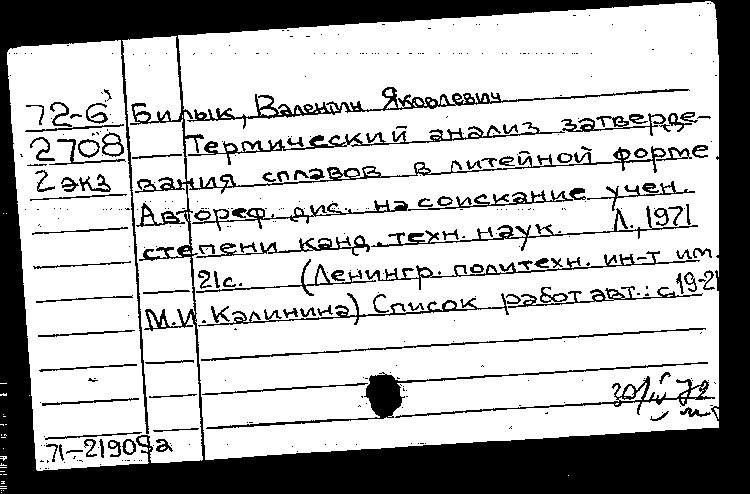 72-6 Билык, Валентин Яковлевич
2708 Термический анализ затверде-
2 экз вания сплавов в литейной форме.
Автореф. дис. на соискание учен.
степени канд. техн. наук. Л., 1971
21с. (Ленингр. политехн. ин-т им.
М.И. Калинина) Список работ авт.: с.19-21
30/IV 72
71-21905а